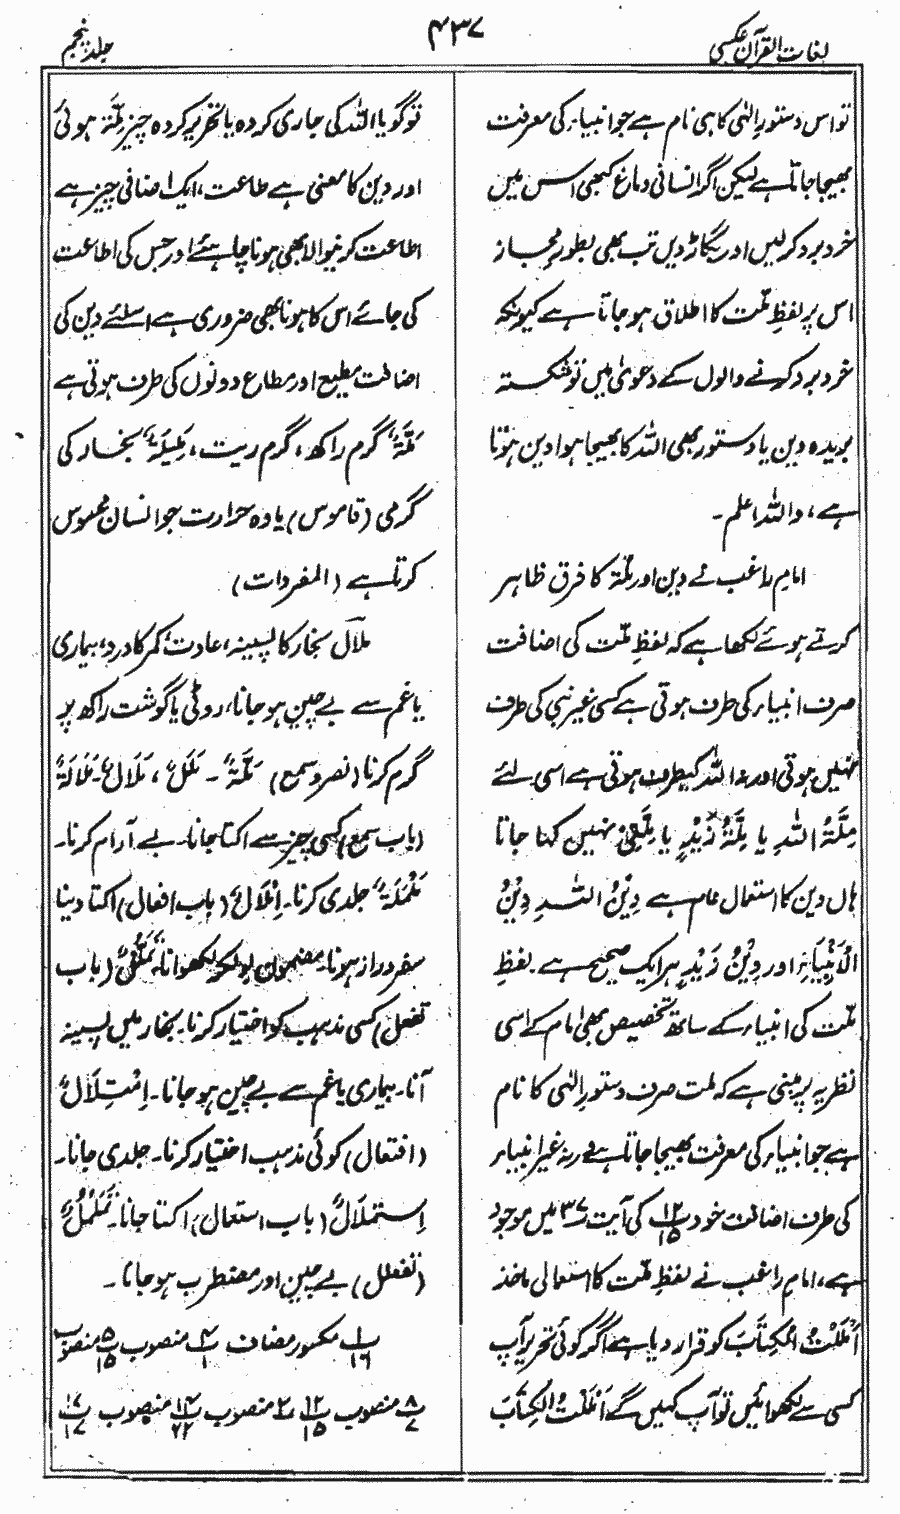 لغات القرآن عکسی
۴۳۷
جلد پنجم
تو اس دستورِ الٰہی کا ہی نام ہے جو انبیاء کی معرفت
بھیجا جاتا ہے لیکن اگر انسانی دماغ کبھی اس میں
خرد برد کرلیں اور بگاڑ دیں تب بھی بطورِ مجاز
اس پر لفظِ ملّت کا اطلاق ہو جاتا ہے کیونکہ
خرد برد کرنے والوں کے دعویٰ میں تو شکستہ
بریدہ دین یا دستور بھی اللہ کا بھیجا ہوا دین ہوتا
ہے، واللہ اعلم۔
امام راغب نے دین اور ملّۃ کا فرق ظاہر
کرتے ہوئے لکھا ہے کہ لفظِ ملّت کی اضافت
صرف انبیاء کی طرف ہوتی ہے کسی غیر نبی کی طرف
نہیں ہوتی اور نہ اللہ کیطرف ہوتی ہے اسی لئے
مِلَّۃُ اللہِ یا مِلَّۃُ زَیْدٍ یا مِلَّتِیْ نہیں کہا جاتا
ہاں دین کا استعمال عام ہے دِیْنُ اللہِ دِیْنُ
الْاَنْبِیَآءِ اور دِیْنُ زَیْدٍ ہر ایک صحیح ہے۔ لفظِ
ملّت کی انبیاء کے ساتھ تخصیص بھی امام کے اسی
نظریہ پر مبنی ہے کہ ملت صرف دستورِ الٰہی کا نام
ہے جو انبیاء کی معرفت بھیجا جاتا ہے ورنہ غیر انبیاء
کی طرف اضافت خود پ ۱۲/۱۵ کی آیت ۳۷ میں موجود
ہے، امام راغب نے لفظِ ملّت کا استعمالی ماخذ
اَمْلَلْتُ الْکِتَابَ کو قرار دیا ہے اگر کوئی تحریر آپ
کسی سے لکھوائیں تو آپ کہیں گے اَمْلَلْتُ الْکِتَابَ
تو گویا اللہ کی جاری کردہ یا تحریر کردہ چیز مِلَّۃ ہوئی
اور دین کا معنی ہے طاعت، ایک اضافی چیز ہے
اطاعت کرنیوالا بھی ہونا چاہئے اور جس کی اطاعت
کی جائے اس کا ہونا بھی ضروری ہے اسلئے دین کی
اضافت مطیع اور مطاع دونوں کی طرف ہوتی ہے
مَلَّۃٌ گرم راکھ، گرم ریت، مَلِیْلَۃٌ بخار کی
گرمی (قاموس) یا وہ حرارت جو انسان محسوس
کرتا ہے (المفردات)
ملال بخار کا پسینہ، عادت، کمر کا درد، بیماری
یا غم سے بے چین ہو جانا، روٹی یا گوشت راکھ پر
گرم کرنا (نصر و سمع) مَلَّۃٌ ۔ مَلَلٌ، مَلَالٌ ۔ مَلَالَۃٌ
(باب سمع) کسی چیز سے اکتا جانا۔ بے آرام کرنا۔
مَلْمَلَۃٌ جلدی کرنا۔ اِمْلَالٌ (باب افعال) اکتا دینا
سفر دراز ہونا۔ مضمون بولکر لکھوانا۔ تَمَلُّلٌ (باب
تفعل) کسی مذہب کو اختیار کرنا۔ بخار میں پسینہ
آنا۔ بیماری یا غم سے بے چین ہو جانا۔ اِمْتِلَالٌ
(افتعال) کوئی مذہب اختیار کرنا۔ جلدی جانا۔
اِستملَالٌ (باب استفعال) اکتا جانا۔ تَمَلْمُلٌ
(تفعلل) بے چین اور مضطرب ہو جانا۔
پ ۱/۱۶ مکسور مضاف پ ۴/۱ منصوب پ ۵/۱۵ منصوب
پ ۸/۷ منصوب پ ۱۲/۱۵ ۲ منصوب پ ۱۴/۲۲ منصوب پ ۱۷/۱۷